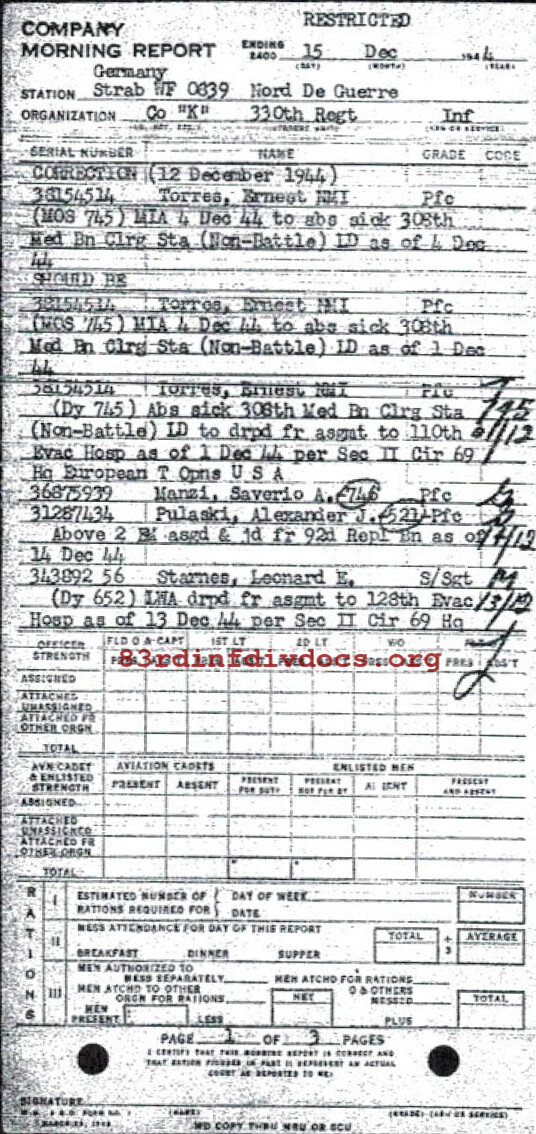 RESTRICTED
COMPANY
MORNING REPORT ENDING 2400 15 Dec 1944
(DAY) (MONTH) (YEAR)
Germany
STATION Strab WF 0839 Nord De Guerre
ORGANIZATION Co "K" 330th Regt Inf
SERIAL NUMBER NAME GRADE CODE
CORRECTION (12 December 1944)
38154514 Torres, Ernest NMI Pfc
(MOS 745) MIA 4 Dec 44 to abs sick 308th
Med Bn Clrg Sta (Non-Battle) LD as of 4 Dec
44
SHOULD BE
38154514 Torres, Ernest NMI Pfc
(MOS 745) MIA 4 Dec 44 to abs sick 308th
Med Bn Clrg Sta (Non-Battle) LD as of 1 Dec
44
38154514 Torres, Ernest NMI Pfc
(Dy 745) Abs sick 308th Med Bn Clrg Sta
(Non-Battle) LD to drpd fr asgmt to 110th
Evac Hosp as of 1 Dec 44 per Sec II Cir 69
Hq European T Opns U S A
36875939 Manzi, Saverio A. 746 Pfc
31287434 Pulaski, Alexander J. 521 Pfc
Above 2 EM asgd & jd fr 92d Repl Bn as of
14 Dec 44
343892 56 Starnes, Leonard E. S/Sgt
(Dy 652) LWA drpd fr asgmt to 128th Evac
Hosp as of 13 Dec 44 per Sec II Cir 69 Hq
83rdinfdivdocs.org
OFFICER STRENGTH FLD O & CAPT 1ST LT 2D LT W O
ASSIGNED
ATTACHED UNASSIGNED
ATTACHED FR OTHER ORGN
TOTAL
AVN CADET & ENLISTED STRENGTH AVIATION CADETS ENLISTED MEN
PRESENT ABSENT PRESENT FOR DUTY PRESENT NOT FOR DY ABSENT PRESENT AND ABSENT
ASSIGNED
ATTACHED UNASSIGNED
ATTACHED FR OTHER ORGN
TOTAL
RATIONS
I ESTIMATED NUMBER OF RATIONS REQUIRED FOR DAY OF WEEK DATE NUMBER
II MESS ATTENDANCE FOR DAY OF THIS REPORT TOTAL ÷ 3 AVERAGE
BREAKFAST DINNER SUPPER
III MEN AUTHORIZED TO MESS SEPARATELY MEN ATCHD FOR RATIONS
MEN ATCHD TO OTHER ORGN FOR RATIONS NET O & OTHERS MESSED TOTAL
MEN PRESENT LESS PLUS
PAGE 1 OF 3 PAGES
I CERTIFY THAT THIS MORNING REPORT IS CORRECT AND
THAT RATION FIGURES IN PART II REPRESENT AN ACTUAL
COUNT AS REPORTED TO ME:
SIGNATURE
W.D. A.G.O. FORM NO. 1 (NAME) (GRADE) (ARM OR SERVICE)
WD COPY THRU MRU OR SCU